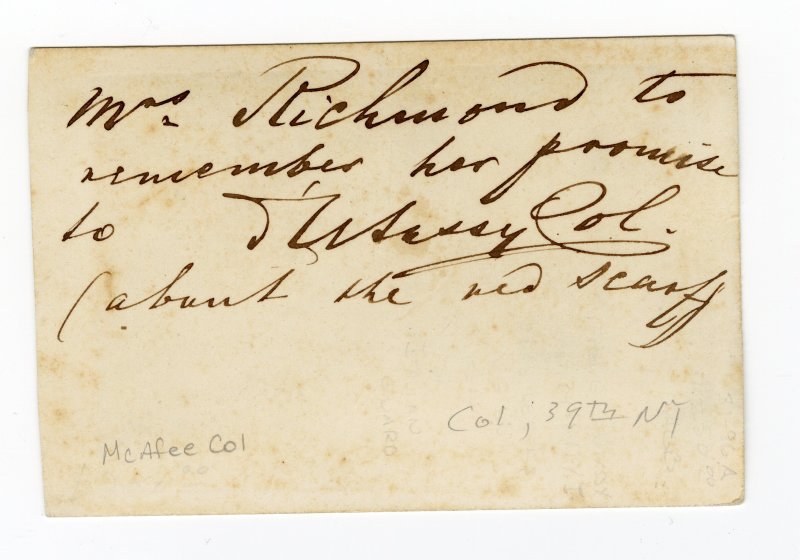 Mrs. Richmond to
remember her promise
to D'Utassy Col.
(about the red scarff
Col, 39TH NY
McAfee Col